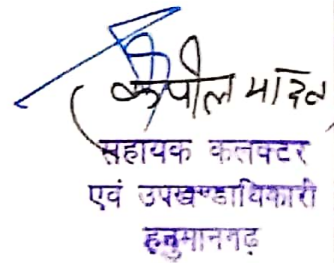 कपील यादव
सहायक कलक्टर
एवं उपखण्डाधिकारी
हनुमानगढ़